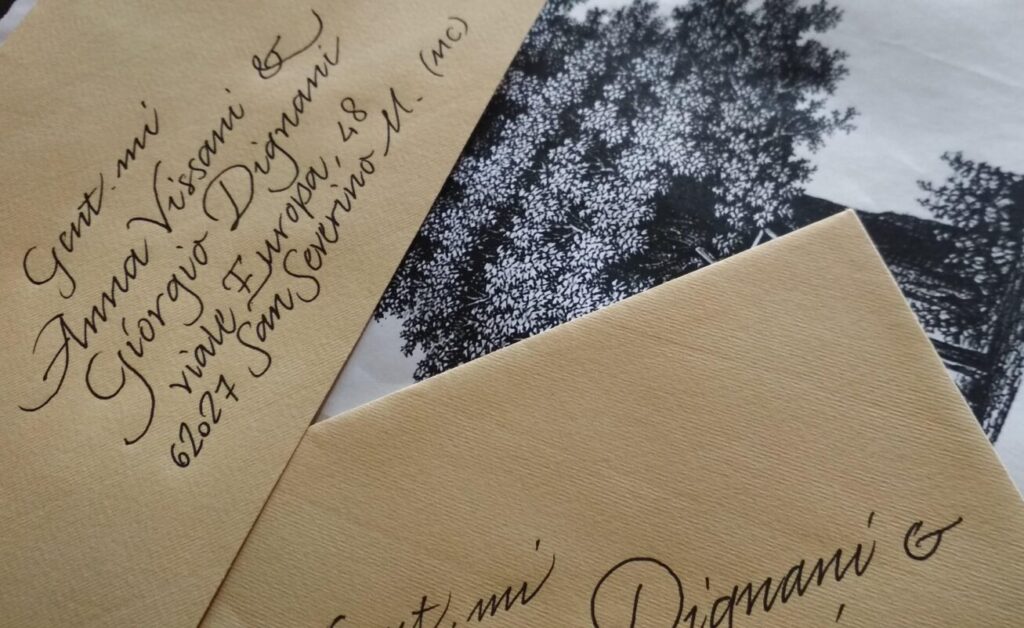 Gent.mi
Anna Vissani &
Giorgio Dignani
viale Europa, 48
62027 San Severino M. (MC)
Gent.mi
Dignani &